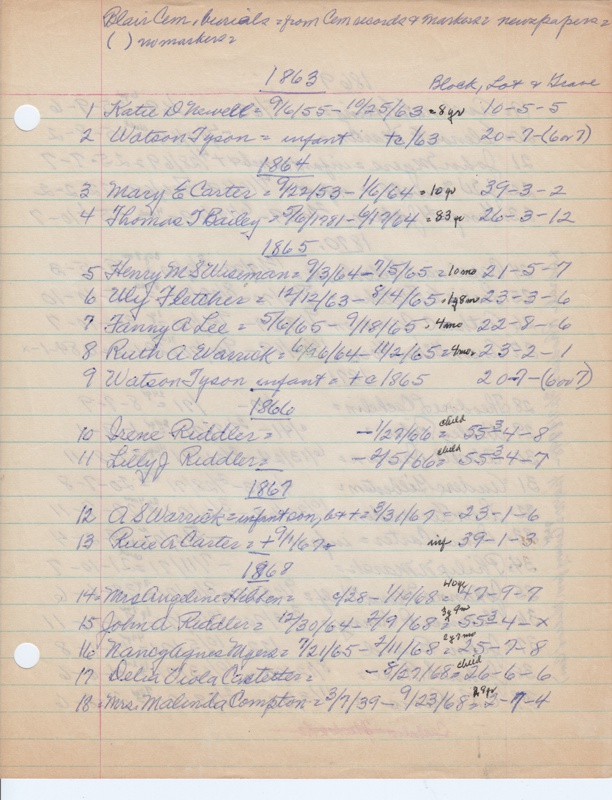 Blair Cem, burials = from Cem records & markers = newspapers =
( ) no markers =
1863 Block, Lot & Grave
1 Katie D Newell = 9/6/55 - 10/25/63 = 8yr 10-5-5
2 Watson Tyson = infant +c/63 20-7-(6or7)
1864
3 Mary E Carter = 9/22/53 - 1/6/64 = 10yr 39-3-2
4 Thomas T Bailey = 5/6/1781 - 6/17/64 = 83yr 26-3-12
1865
5 Henry M S Wiseman = 9/3/64 - 7/5/65 = 10mo 21-5-7
6 Uly Fletcher = 12/12/63 - 8/4/65 = 1y8mo 23-3-6
7 Fanny A Lee = 5/6/65 - 9/18/65 = 4mo 22-8-6
8 Ruth A Warrick = /64 - 11/2/65 = 4mo = 23-2-1
9 Watson Tyson infant = +c 1865 20-7-(6or7)
1866
10 Irene Riddler = -1/27/66 = child 55 3-4-8
11 Lilly J Riddler = -2/5/66 = child 55 3-4-7
1867
12 A S Warrick = infant son, b + + = 3/31/67 = 23-1-6
13 A Carter = + 9/1/67 = inf 39-1-3
1868
14 = Mrs Angeline Hibben = c/28 - 1/19/68 = 40yr 47-9-7
15 John A Riddler = 12/30/64 - 2/9/68 = 55 3-4-x
16 Nancy Agnes Myers = 7/21/65 - 2/11/68 = 25-7-8
17 Delia Viola = - 8/27/68 = child 26-6-6
18 = Mrs. Malinda Compton = 3/7/39 - 9/23/68 = 29yr 2-7-4